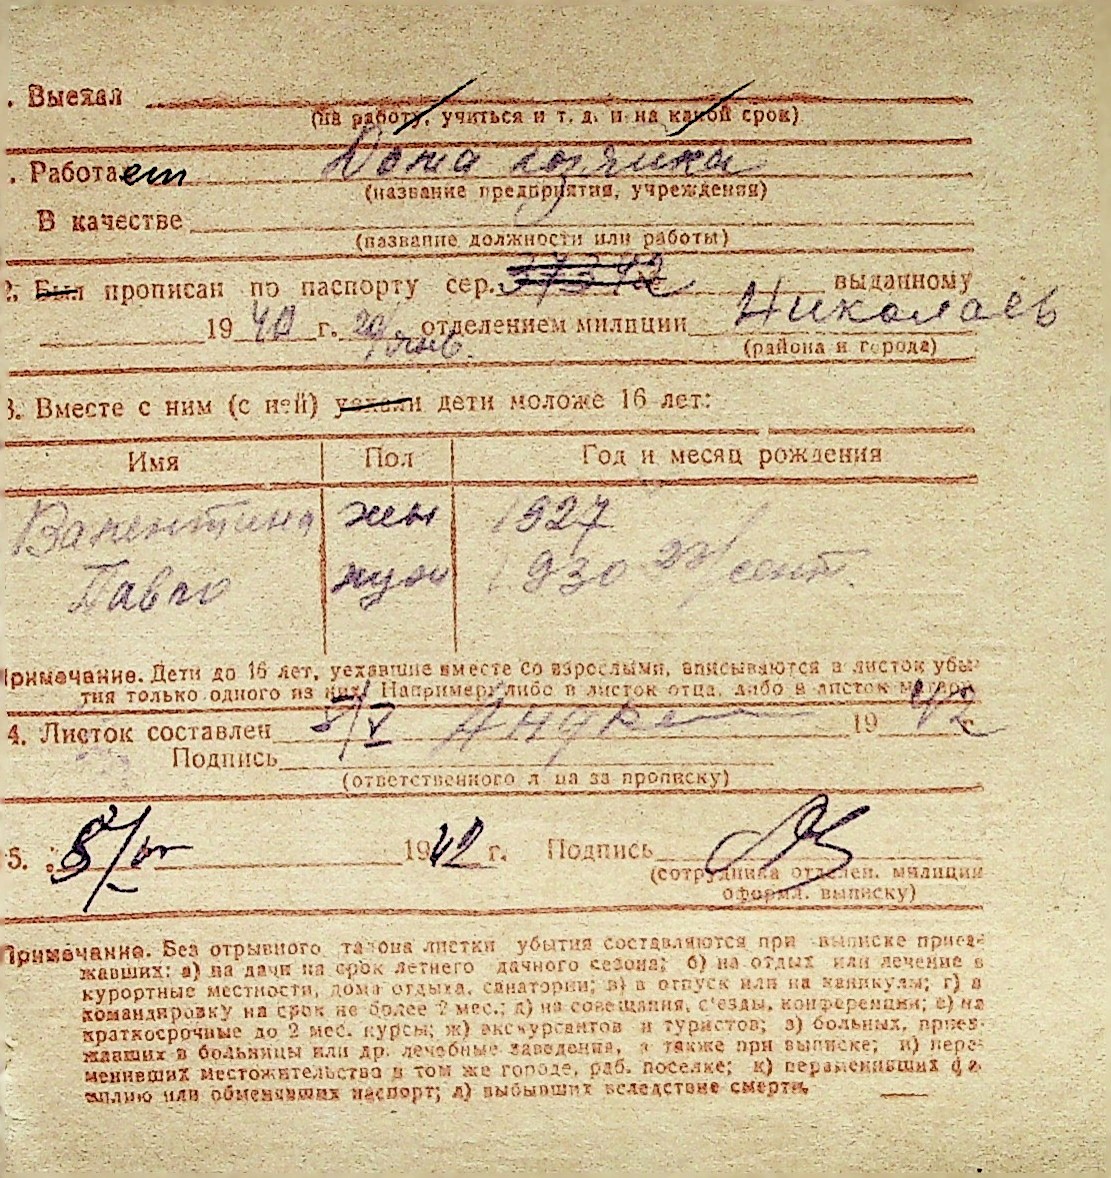 . Выехал
(на работу, учиться и т. д. и на какой срок)
. Работает Домохозяйка
(название предприятия, учреждения)
В качестве
(название должности или работы)
2. Был прописан по паспорту сер. 37342 выданному
1940 г. 20/янв. отделением милиции Николаев
(района и города)
3. Вместе с ним (с ней) уехали дети моложе 16 лет:
Имя Пол Год и месяц рождения
Валентина жен 1927
Павло муж 1930 22/сент.
Примечание. Дети до 16 лет, уехавшие вместе со взрослыми, вписываются в листок убы-
тия только одного из них. Например: либо в листок отца, либо в листок матери.
4. Листок составлен 5/V 1942 г.
Подпись
(ответственного лица за прописку)
5. 1942 г. Подпись
(сотрудника отделен. милиции
оформл. выписку)
Примечание. Без отрывного талона листки убытия составляются при выписке приез-
жавших: а) на дачи на срок летнего дачного сезона; б) на отдых или лечение в
курортные местности, дома отдыха, санатории; в) в отпуск или на каникулы; г) в
командировку на срок не более 2 мес.; д) на совещания, съезды, конференции; е) на
краткосрочные до 2 мес. курсы; ж) экскурсантов и туристов; з) больных, приез-
жавших в больницы или др. лечебные заведения, а также при выписке; и) пере-
менивших местожительство в том же городе, раб. поселке; к) переменивших фа-
милию или обменявших паспорт; л) выбывших вследствие смерти.